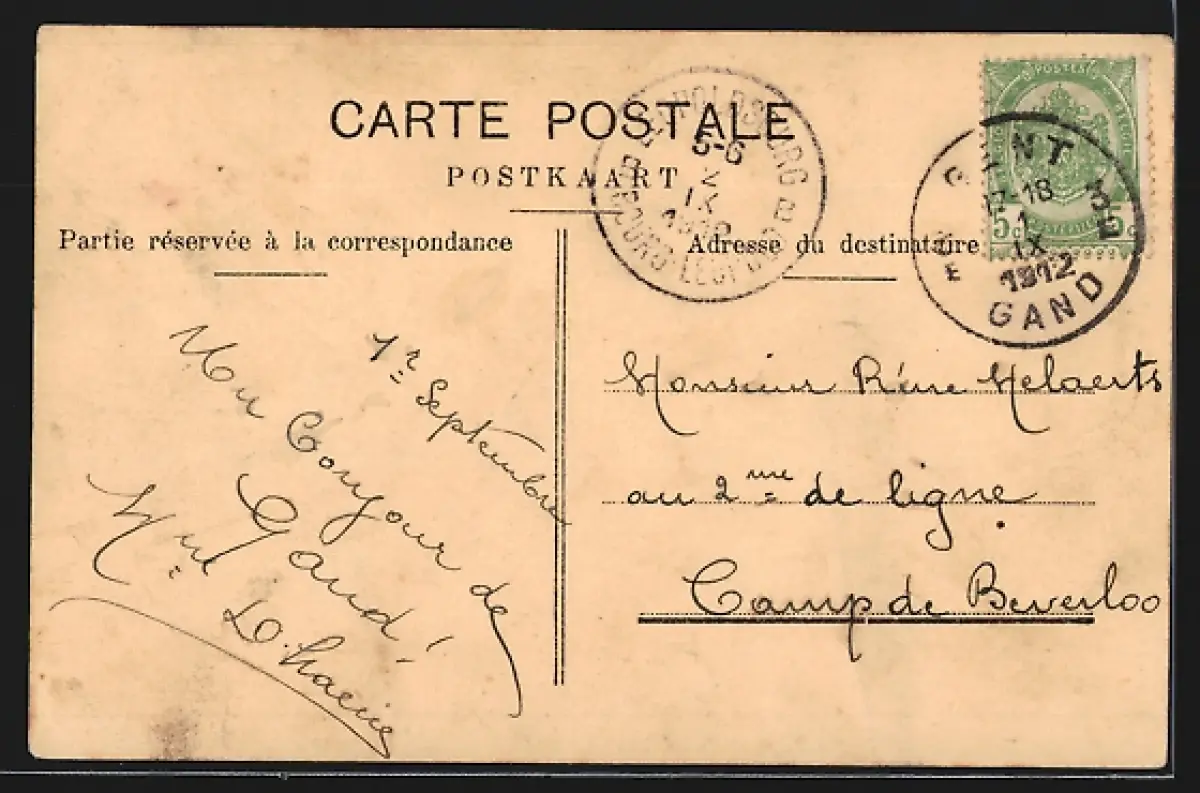 CARTE POSTALE
POSTKAART
Partie réservée à la correspondance
Adresse du destinataire
POSTES
5 c 5 c
GENT
17-18
1
IX
1912
GAND
LEOPOLDSBURG
5-6
2
IX
BOURG-LEOPOLD
1r Septembre
Un bonjour de
Gand!
Mme D'haene
Monsieur Réné Melaerts
au 2me de ligne
Camp de Beverloo